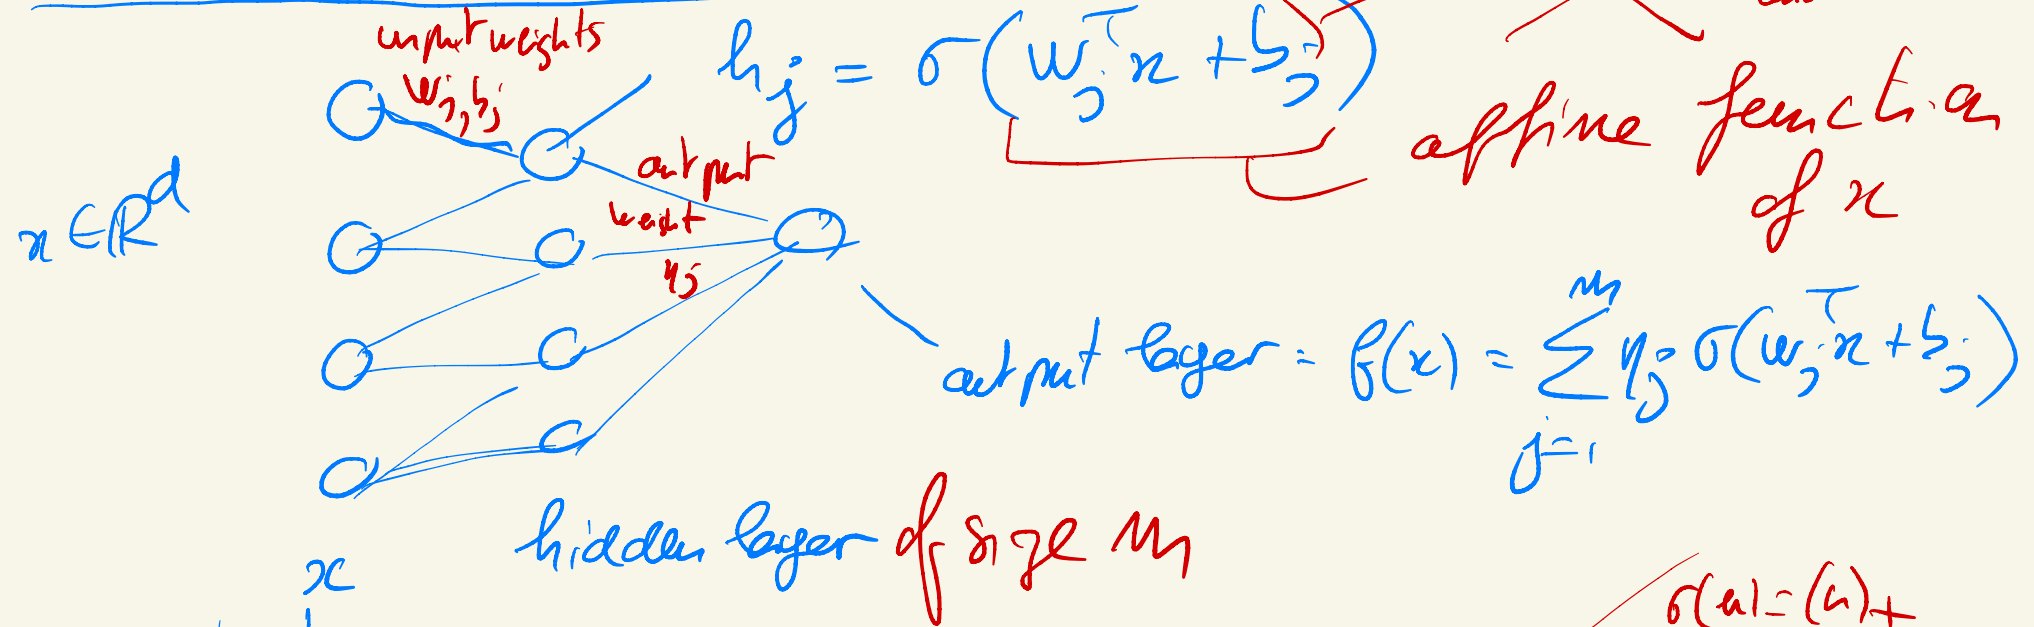 input weights
w_j, b_j
h_j = σ(w_j^T x + b_j)
affine function
of x
x ∈ ℝ^d
output
weight
η_j
output layer = f(x) = ∑_{j=1}^{m} η_j σ(w_j^T x + b_j)
hidden layer of size m
x
σ(u) = (u)_+